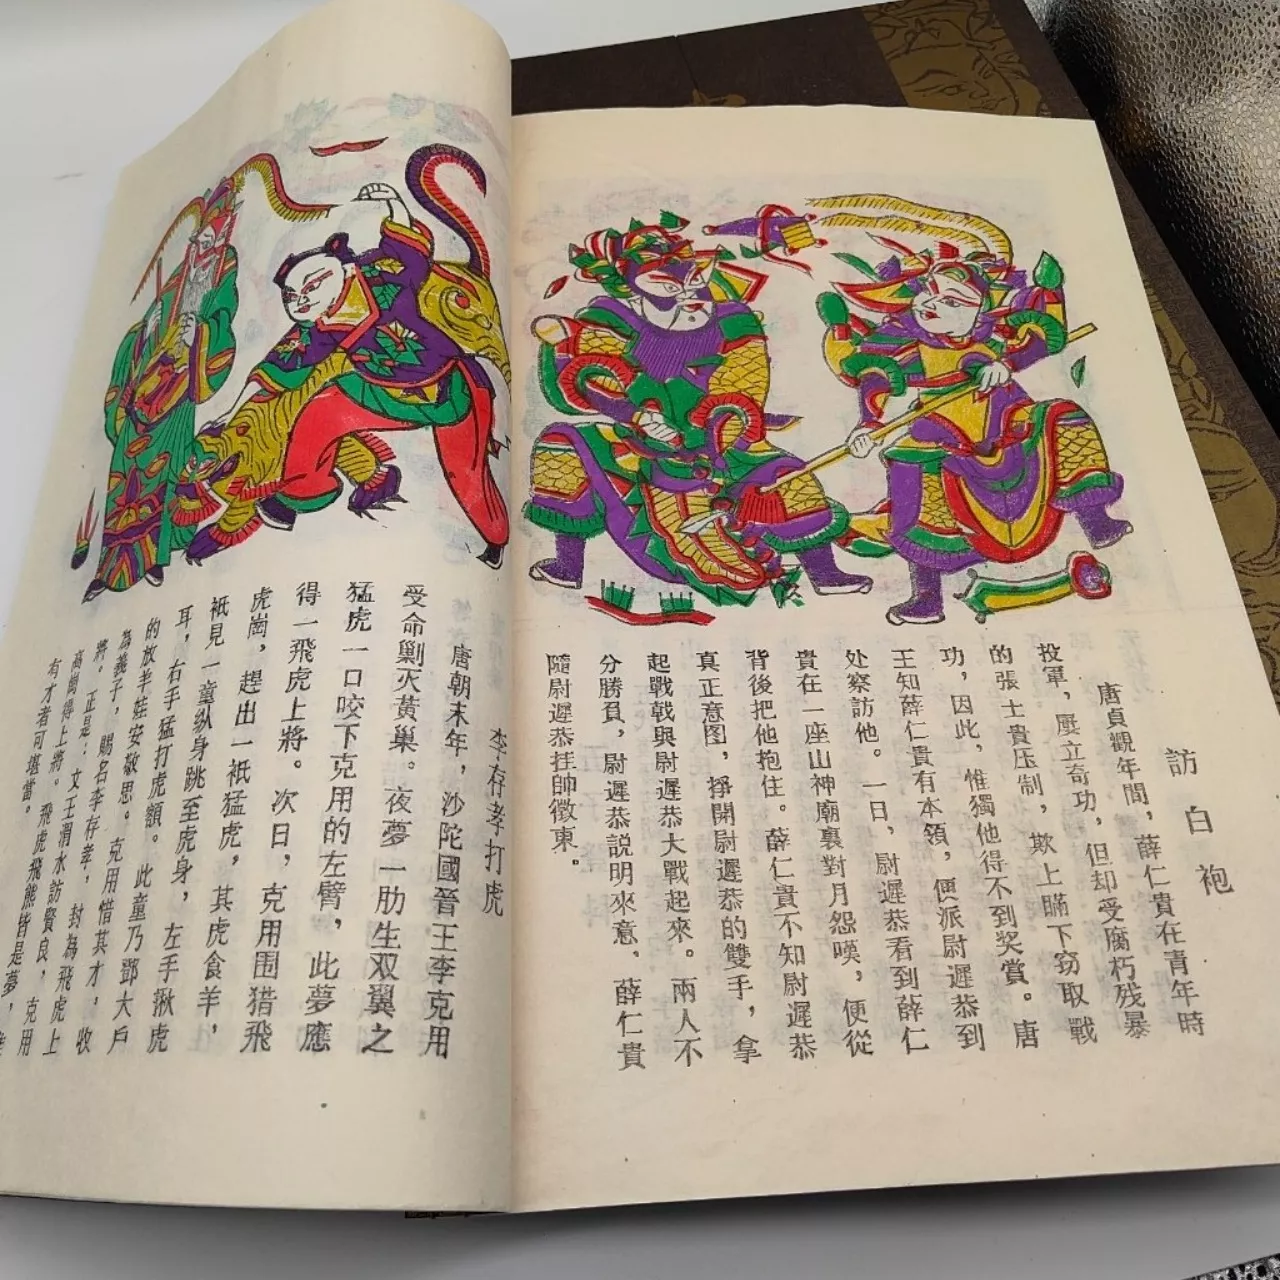 訪白袍
唐貞觀年間，薛仁貴在青年時
投軍，屢立奇功，但却受腐朽残暴
的張士貴压制，欺上瞞下窃取戰
功，因此，惟獨他得不到奖賞。唐
王知薛仁貴有本領，便派尉遲恭到
处察訪他。一日，尉遲恭看到薛仁
貴在一座山神廟裏對月怨嘆，便從
背後把他抱住。薛仁貴不知尉遲恭
真正意图，掙開尉遲恭的雙手，拿
起戰戟與尉遲恭大戰起來。兩人不
分勝負，尉遲恭説明來意，薛仁貴
隨尉遲恭挂帥徵東。
李存孝打虎
唐朝末年，沙陀國晉王李克用
受命剿灭黃巢。夜夢一肋生双翼之
猛虎一口咬下克用的左臂，此夢應
得一飛虎上將。次日，克用围猎飛
虎崗，趕出一衹猛虎，其虎食羊，
衹見一童纵身跳至虎身，左手揪虎
耳，右手猛打虎額。此童乃鄧大戶
的放羊娃安敬思。克用惜其才，收
為義子，賜名李存孝，封為飛虎上
將。正是：文王渭水訪賢良，克用
高崗得上將。飛虎飛熊皆是夢，
有才者可堪當。